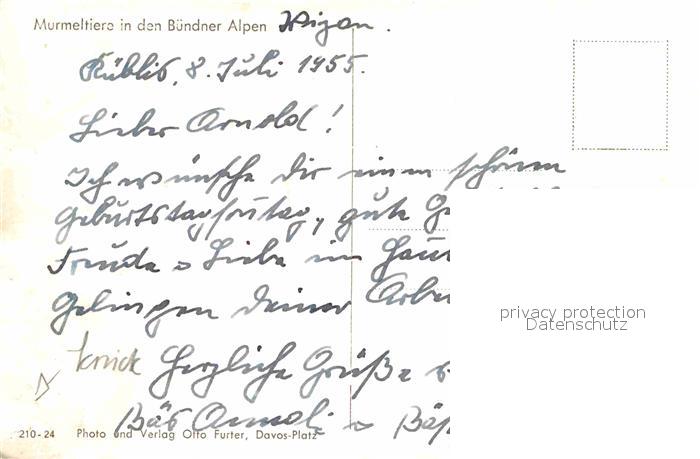 Murmeltiere in den Bündner Alpen
Küblis, 8. Juli 1955.
Lieber Arnold!
Ich wünsche dir einen schönen
Geburtstagsontag, gute G
Freude u Liebe im Haus
Gelingen deiner Arbe
knick Herzliche Grüße
Bäs Annali u Bäs
210-24 Photo und Verlag Otto Furter, Davos-Platz
privacy protection
Datenschutz